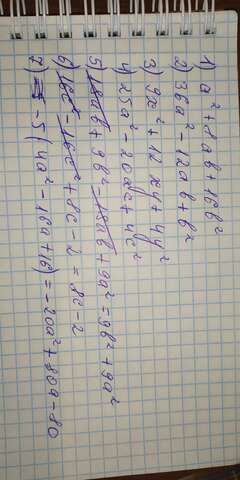 1) a² + 8ab + 16b²
2) 36a² - 12ab + b²
3) 9x² + 12xy + 4y²
4) 25a² - 20xc + 4c²
5) 18ab + 9b² - 18ab + 9a² = 9b² + 9a²
6) 16c² - 16c² + 8c - 2 = 8c - 2
7) -5(4a² - 16a + 16) = -20a² + 80a - 80